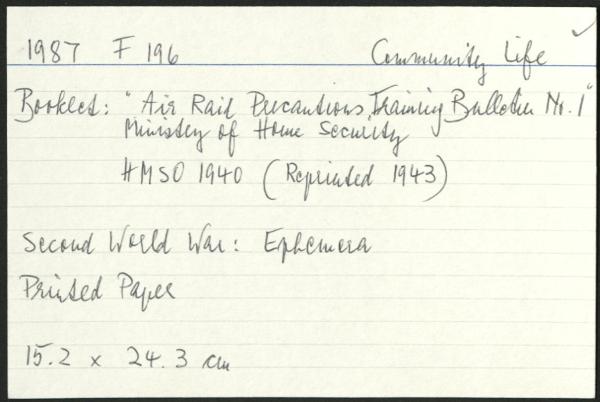 1987 F 196 Community Life
Booklet: "Air Raid Precautions Training Bulletin No. 1"
Ministry of Home Security
HMSO 1940 (Reprinted 1943)
Second World War: Ephemera
Printed Paper
15.2 x 24.3 cm